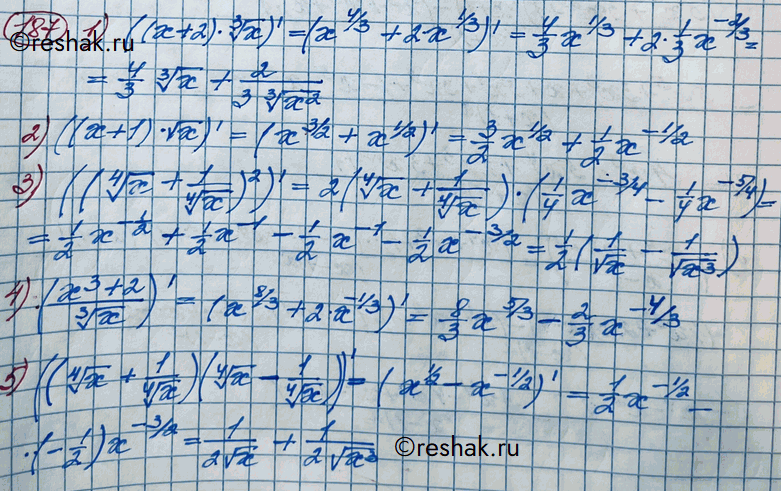 187. 1) ((x+2)·∛x)' = (x^{4/3} + 2·x^{1/3})' = 4/3 x^{1/3} + 2·1/3 x^{-2/3} =
= 4/3 ∛x + 2/(3∛(x²))
2) ((x+1)·√x)' = (x^{3/2} + x^{1/2})' = 3/2 x^{1/2} + 1/2 x^{-1/2}
3) ((∜x + 1/∜x)²)' = 2(∜x + 1/∜x)·(1/4 x^{-3/4} - 1/4 x^{-5/4}) =
= 1/2 x^{-1/2} + 1/2 x^{-1} - 1/2 x^{-1} - 1/2 x^{-3/2} = 1/2 (1/√x - 1/√(x³))
4) ((x³+2)/∛x)' = (x^{8/3} + 2·x^{-1/3})' = 8/3 x^{5/3} - 2/3 x^{-4/3}
5) ((∜x + 1/∜x)(∜x - 1/∜x))' = (x^{1/2} - x^{-1/2})' = 1/2 x^{-1/2} -
·(-1/2) x^{-3/2} = 1/(2√x) + 1/(2√(x³))
©reshak.ru
©reshak.ru